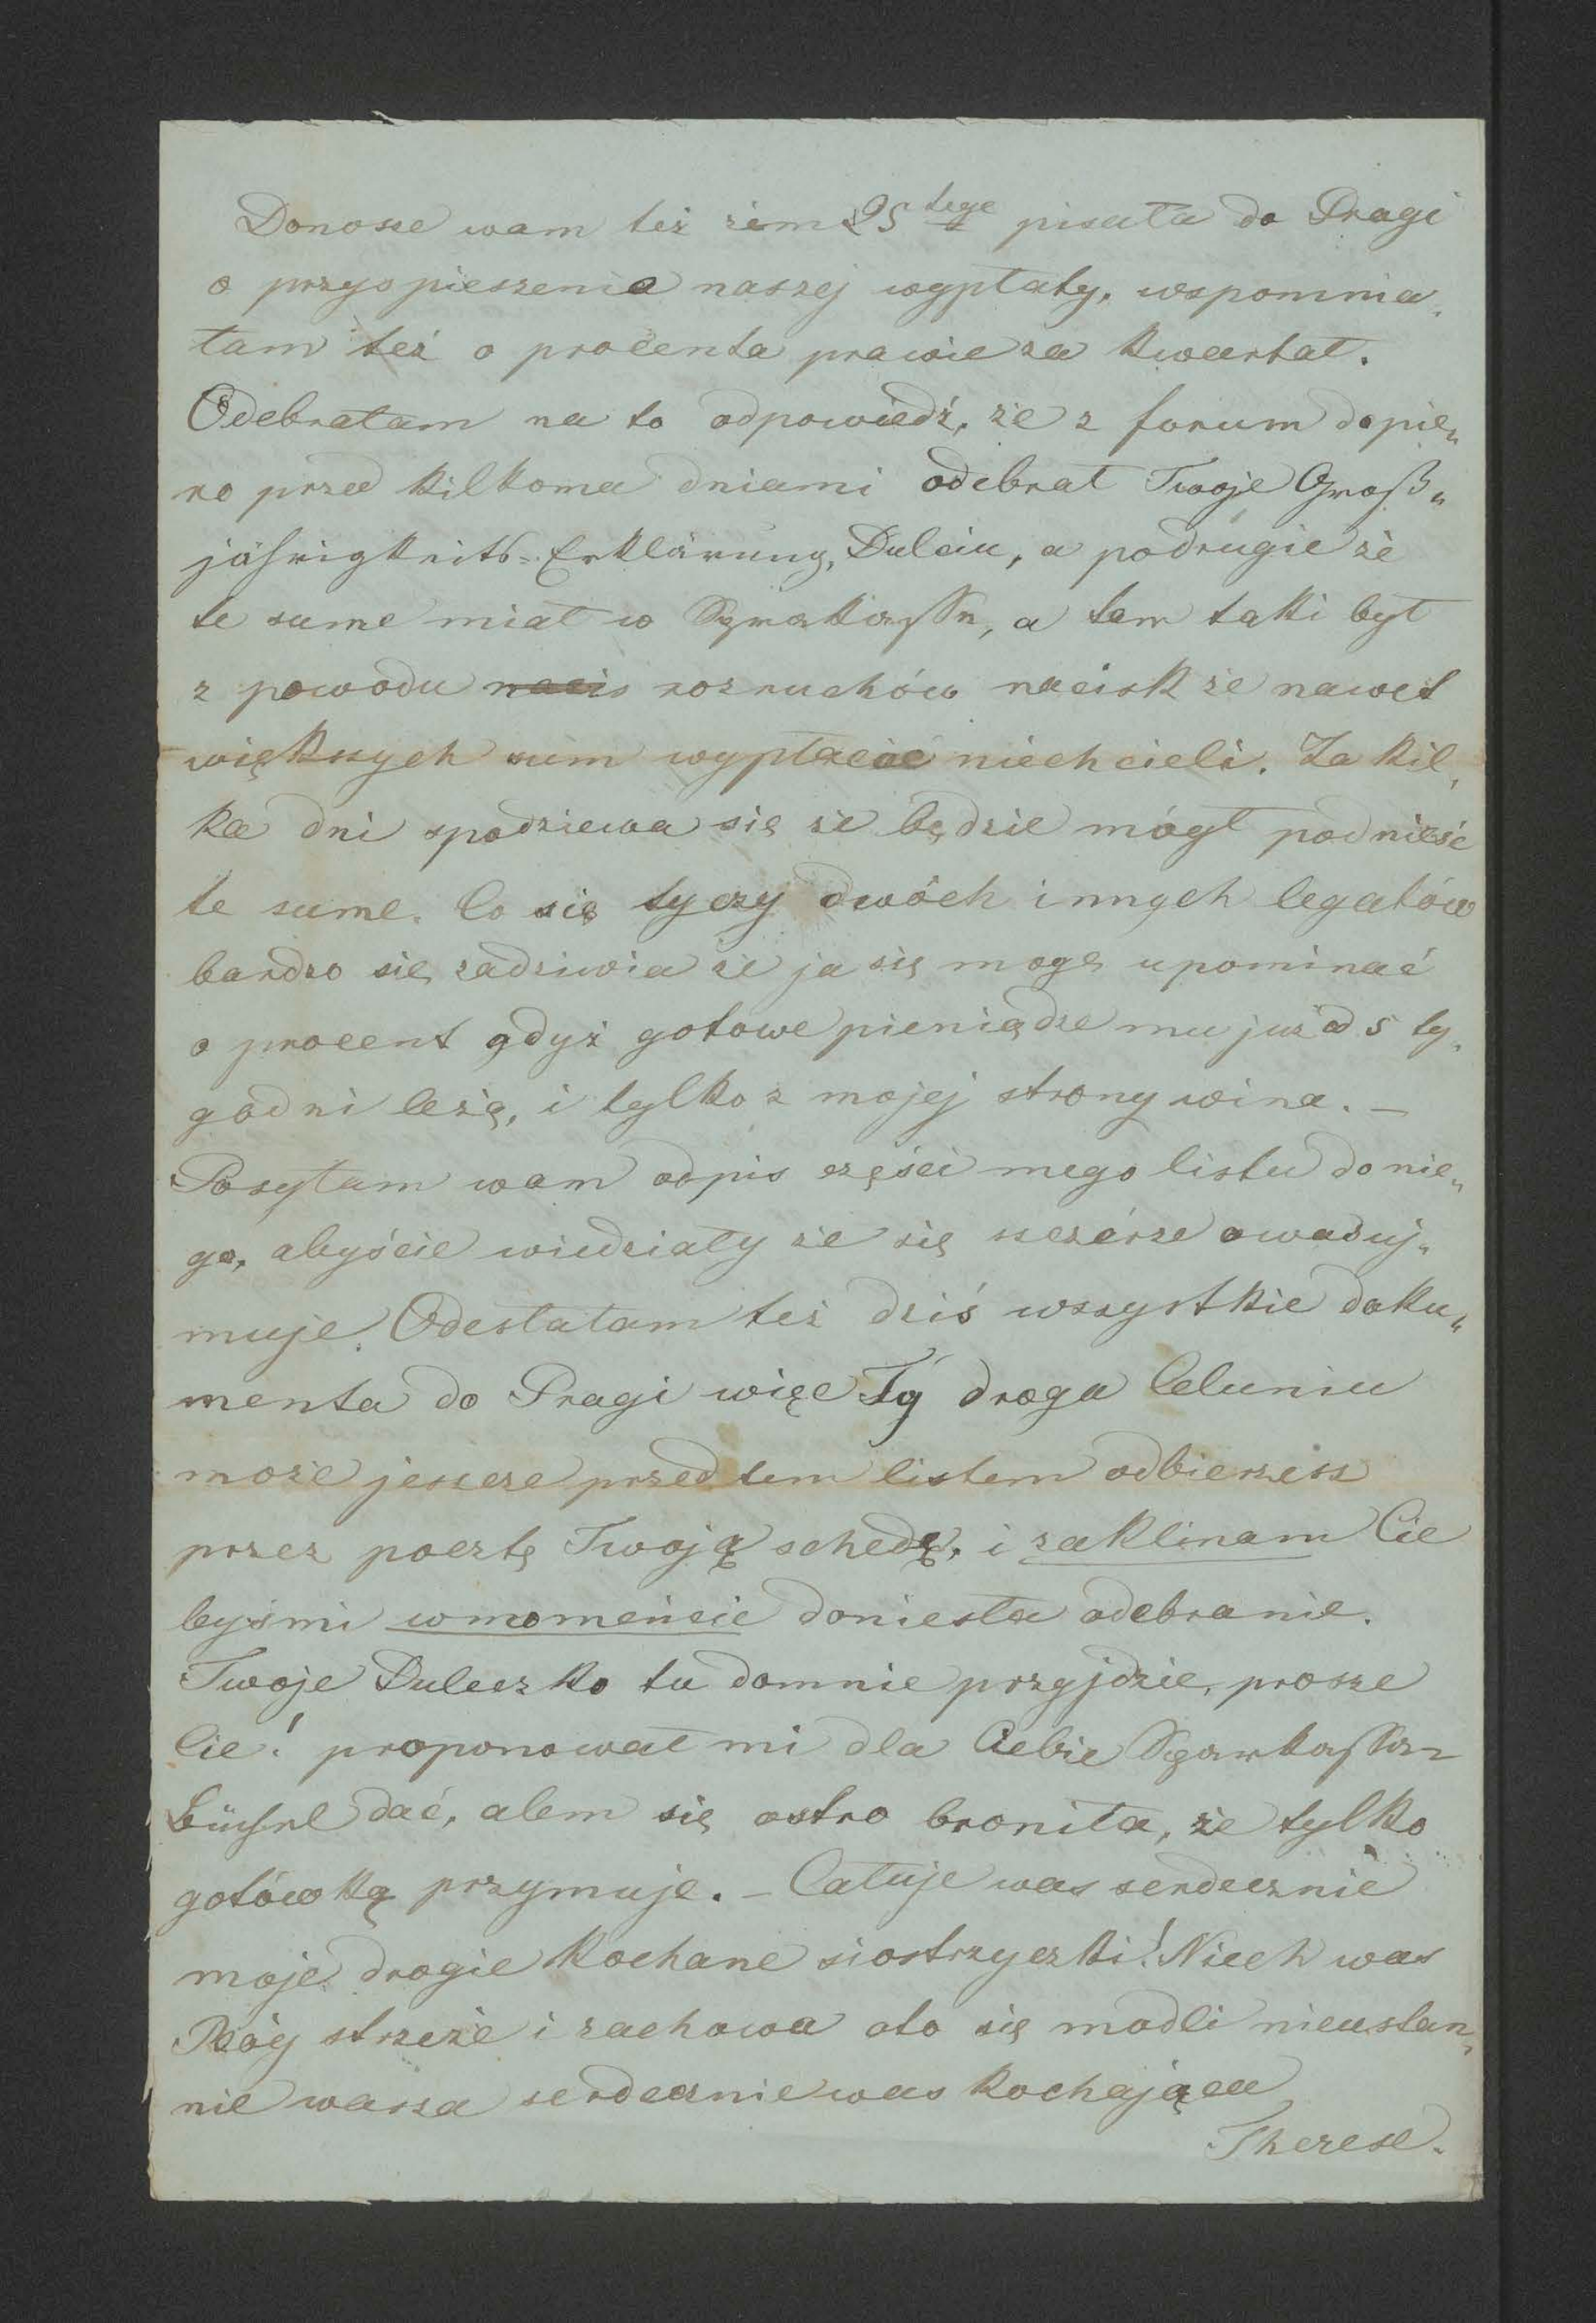 Donosze wam też żem 25tege pisała do Pragi
o przyspieszenie naszej wypłaty, wspomnia„
łam też o procenta prawie za kwartał.
Odebrałam na to odpowiedź, że z forum dopie„
ro przed kilkoma dniami odebrał Twoje Groß„
jährigkeits=Erklärung, Dulciu, a podrugie że
te sume miał w Sparkasse, a tam taki był
z powodu nacis rozruchów nacisk że nawet
większych sum wypłacić niechcieli. Za kil„
ka dni spodziewa się że będzie mógł podnieść
te sume. Co się tyczy dwóch innych legatów
bardzo się zadziwia że ja się mogę upominać
o procent gdyż gotowe pieniądze mu już od 5 ty„
godni leżę, i tylko z mojej strony wina. –
Posyłam wam odpis części mego listu do nie„
go, abyście wiedziały że się szczérze owas uj„
muje. Odesłałam też dziś wszystkie doku„
menta do Pragi więc Ty droga Celuniu
może jeszcze przed tem listem odbierzesz
przez pocztę Twoją schedę, i zaklinam Cie
byś mi wmomeńcie doniesła odebranie.
Twoje Duleczko tu domnie przyjdzie, prosze
Cie! proponował mi dla Ciebie Sparkassa=
Büchel dać, alem się ostro broniła, że tylko
gotówką przymuje. – Całuje was serdecznie
moje drogie kochane siostrzyczki! Niech was
Bóg strzeże i zachowa oto się modli nieustan„
nie wasza serdecznie was kochająca
Therese.